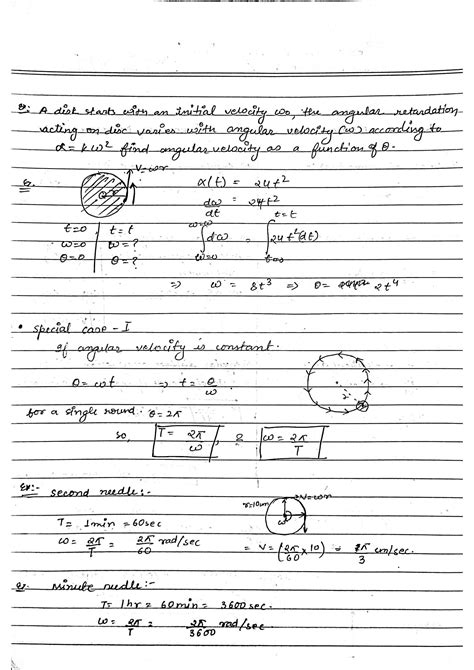 Q: A disk starts with an initial velocity ω₀, the angular retardation
acting on disc varies with angular velocity (ω) according to
α = kω² find angular velocity as a function of θ.
V=ωr
α(t) = 24t²
dω/dt = 24t²
t=0 | t=t
ω=0 | ω=?
θ=0 | θ=?
∫dω = ∫24t²(dt)
ω=ω t=t
ω=0 t=0
⇒ ω = 8t³ ⇒ θ = 2t⁴
• special case - I
if angular velocity is constant.
θ = ωt ⇒ t = θ/ω
for a single round θ = 2π
so, T = 2π/ω, & ω = 2π/T
Ex:- second needle:-
r=10cm V=ωr
ω
T = 1min = 60sec
ω = 2π/T = 2π/60 rad/sec = V = (2π/60 × 10) = π/3 cm/sec.
minute needle:-
T = 1hr = 60min = 3600sec.
ω = 2π/T = 2π/3600 rad/sec.